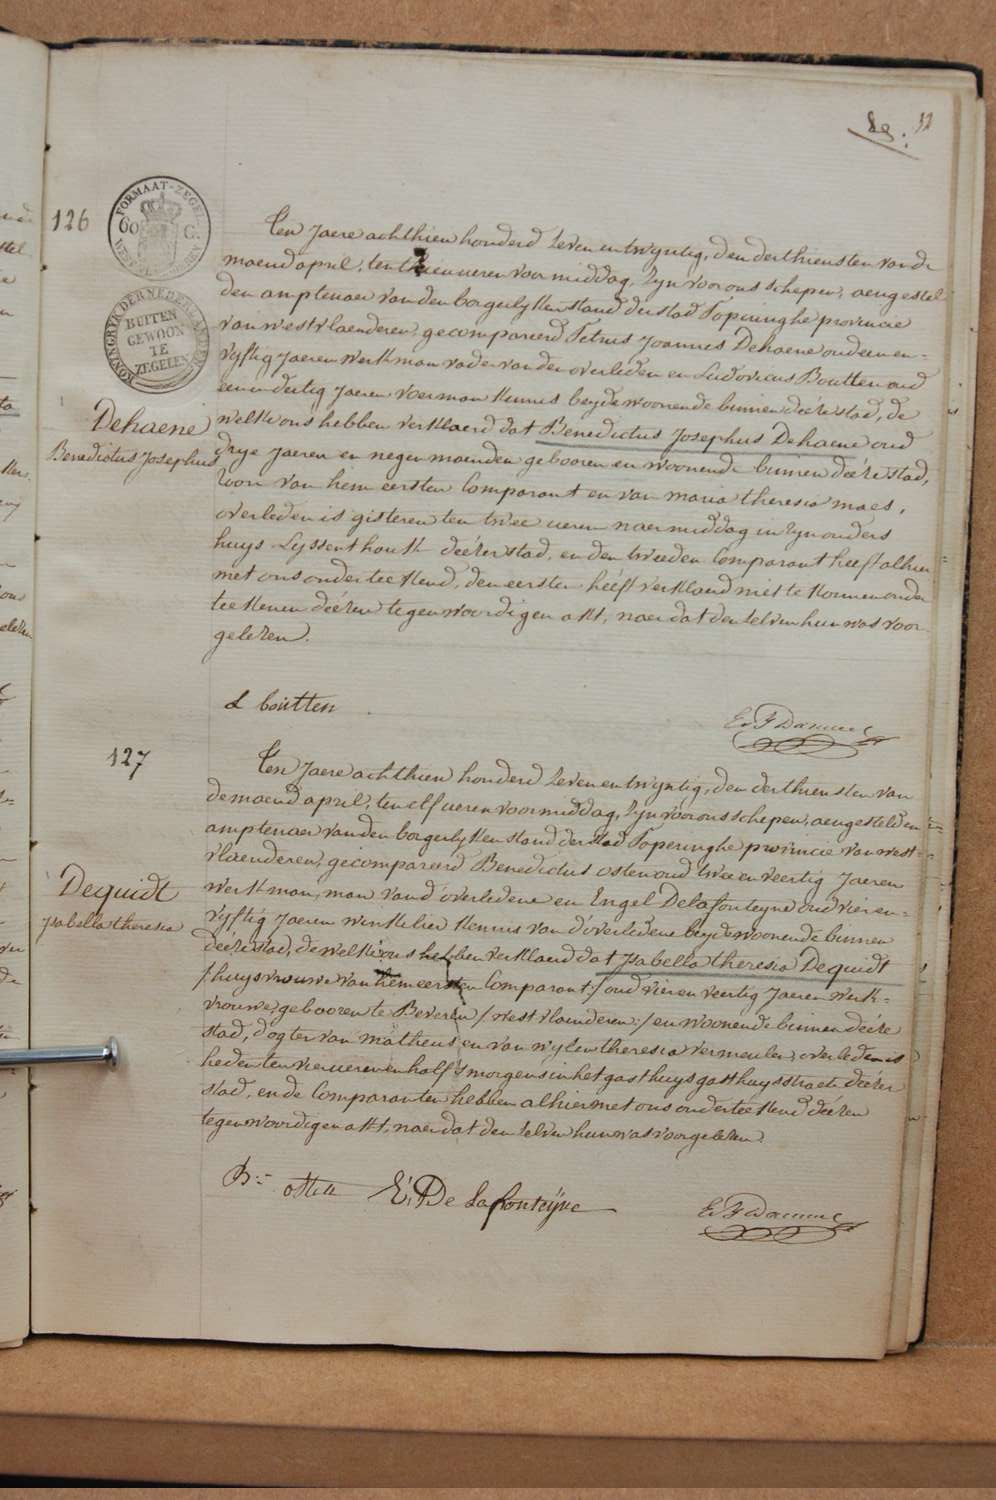 89. 32
126
FORMAAT-ZEGEL
60 C.
KONINGRYK DER NEDERLANDEN
BUITEN
GEWOON
TE
ZEGELEN
Dehaene
Benedictus Josephus
Ten Jaere achthien honderd zeven en twyntig, den derthiensten van de
maend april, ten tien ueren voormiddag, zyn voor ons schepen, aengestel
den amptenaer van den borgerlyken stand der stad Poperinghe provincie
van westvlaenderen, gecompareerd Petrus Joannes Dehaene oud een en=
vyftig Jaeren werkman vader van den overleden en Ludovicus Boutten oud
een en dertig Jaeren voerman kennis beyde woonende binnen deéze stad, de
welke ons hebben verklaerd dat Benedictus Josephus Dehaene oud
drye Jaeren en negen maenden gebooren en woonende binnen deéze stad,
zoon van hem eersten Comparant en van maria theresia maes,
overleden is gisteren ten twee ueren naermiddag in zyn ouders
huys Lyssenthoek deézer stad, en den tweeden Comparant heeft alhier
met ons onderteekend, den eersten heéft verklaerd niet te konnen onder
teekenen deézen tegenwoordigen akt, naer dat den zelven hun was voor
gelezen.
L boutten
E. F Damme
127
Dequidt
Isabella theresia
Ten Jaere achthien honderd zeven en twyntig, den derthiensten van
de maend april, ten elf ueren voormiddag, zyn voor ons schepen, aengestelden
amptenaer van den borgerlyken stand der stad Poperinghe provincie van west=
vlaenderen, gecompareerd Benedictus osten oud twee en veertig Jaeren
werkman, man van d'overledene en Engel Delafonteyne oud vier en=
vyftig Jaeren winkelier kennis van d'overledene beyde woonende binnen
deéze stad, de welke ons hebben verklaerd dat Isabella theresia Dequidt
/huysvrouwe van hem eersten Comparant/ oud vier en veertig Jaeren werk=
vrouwe, gebooren te Beveren /: westvlaenderen:/ en woonende binnen deéze
stad, dogter van matheus en van wylen theresia vermeulen, overleden is
heden ten vier ueren en half 's morgens in het gasthuys gasthuysstraete deézer
stad, en de Comparanten hebben alhier met ons onderteekend deézen
tegenwoordigen akt, naer dat den zelven hun was voorgelezen.
B.= osten E: De Lafonteÿne
E. F Damme